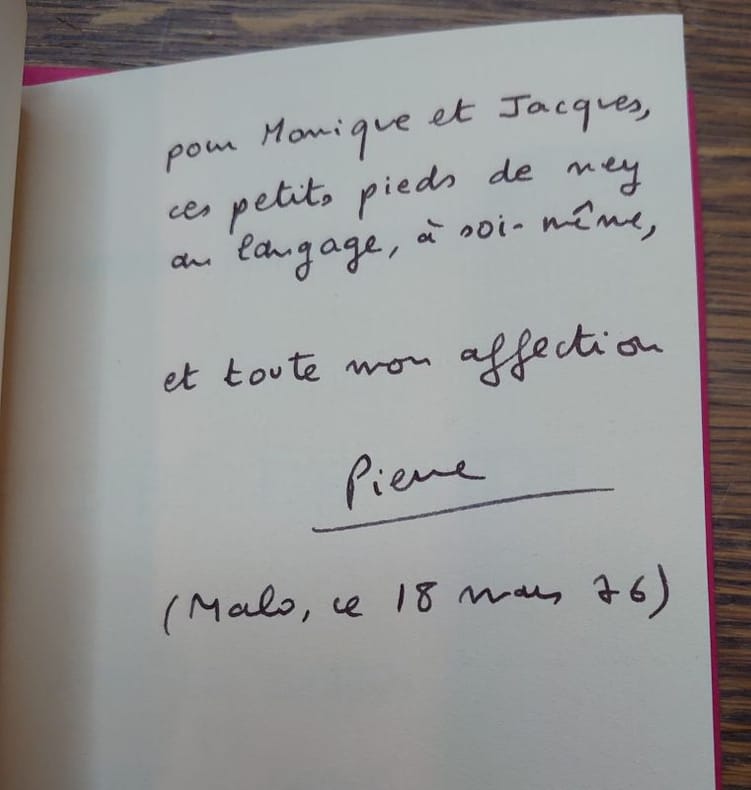 pour Monique et Jacques,
ces petits pieds de ney
au langage, à soi-même,
et toute mon affection
Pierre
(Malo, ce 18 mars 76)